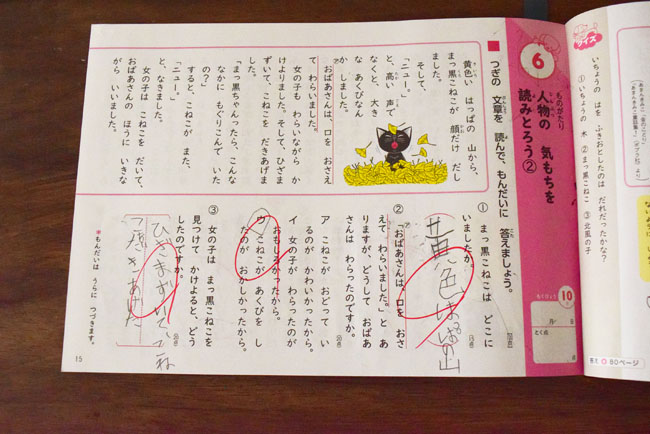 クイズ
いちょうの はを ふきおとしたのは だれだったかな?
① いちょうの 木 ② まっ黒こねこ ③ 北風の子
答え 90ページ
6
ものがたり
人物の 気もちを
読みとろう②
10
月
日
とく点
点
つぎの 文章を 読んで、もんだいに 答えましょう。
黄色い はっぱの 山から、
まっ黒こねこが 顔だけ だし
ました。
そして、
「ニュー。」
と、高い 声で
なくと、大き
な あくびなん
か しました。
おばあさんは、口を おさえ
て わらいました。
女の子も わらいながら か
けよりました。そして、ひざま
ずいて、こねこを だきあげま
した。
「まっ黒ちゃんったら、こんな
なかに もぐりこんで いた
の?」
すると、こねこが また、
「ニュー。」
と、なきました。
女の子は こねこを だいて、
おばあさんの ほうに いきな
がら いいました。
① まっ黒こねこは どこに
いましたか。
黄色いはっぱの山
② 「おばあさんは、口を おさ
えて わらいました。」と あ
りますが、どうして おばあ
さんは わらったのですか。
ア こねこが おどって い
るのが かわいかったから。
イ 女の子が わらったのが
おもしろかったから。
ウ こねこが あくびを し
たのが おかしかったから。
③ 女の子は まっ黒こねこを
見つけて かけよると、どう
したのですか。
ひざまずいて、こね
こをだきあげた
もんだいは うらに つづきます。
15